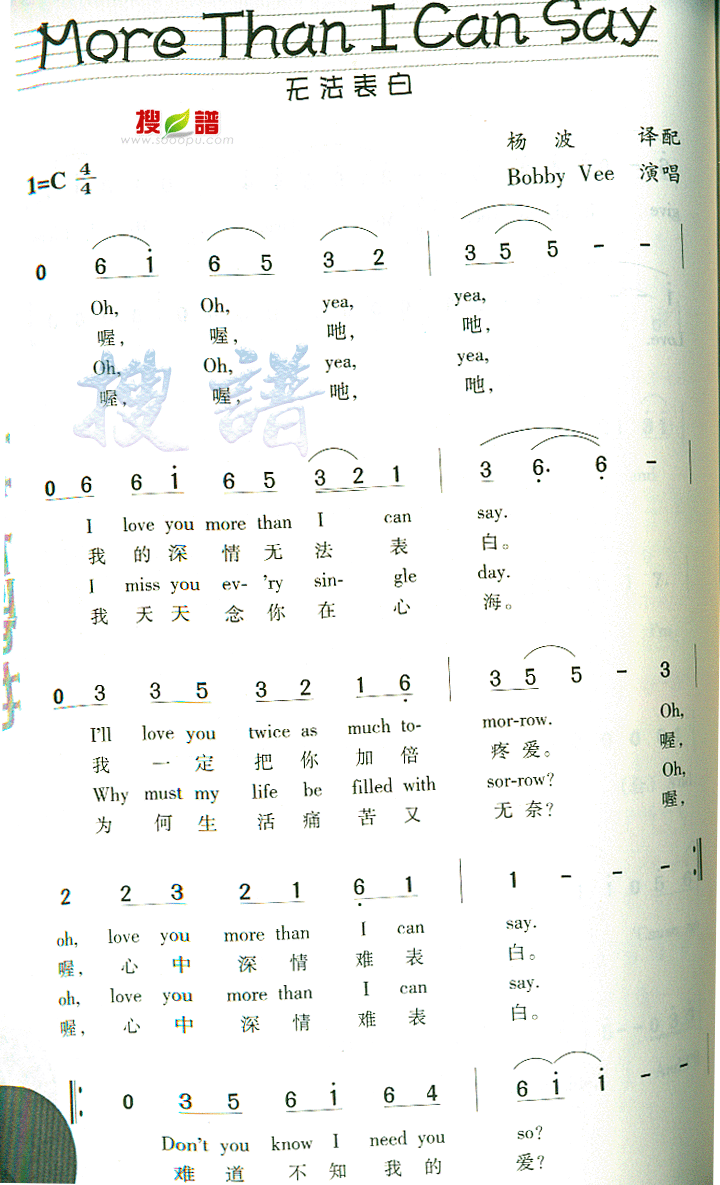 More Than I Can Say
无法表白
搜谱
www.sooopu.com
杨 波 译配
1=C 4/4
Bobby Vee 演唱
0 6 i 6 5 3 2 | 3 5 5 - - |
Oh, Oh, yea, yea,
喔, 喔, 吔, 吔,
Oh, Oh, yea, yea,
喔, 喔, 吔, 吔,
搜谱
0 6 6 i 6 5 3 2 1 | 3 6. 6 - |
I love you more than I can say.
我 的 深 情 无 法 表 白。
I miss you ev- 'ry sin- gle day.
我 天 天 念 你 在 心 海。
0 3 3 5 3 2 1 6 | 3 5 5 - 3 |
I'll love you twice as much to- mor-row. Oh,
我 一 定 把 你 加 倍 疼 爱。 喔,
Why must my life be filled with sor-row? Oh,
为 何 生 活 痛 苦 又 无 奈? 喔,
2 2 3 2 1 6 1 | 1 - - - :|
oh, love you more than I can say.
喔, 心 中 深 情 难 表 白。
oh, love you more than I can say.
喔, 心 中 深 情 难 表 白。
|: 0 3 5 6 i 6 4 | 6 i i - - |
Don't you know I need you so?
难 道 不 知 我 的 爱?
give
Love.